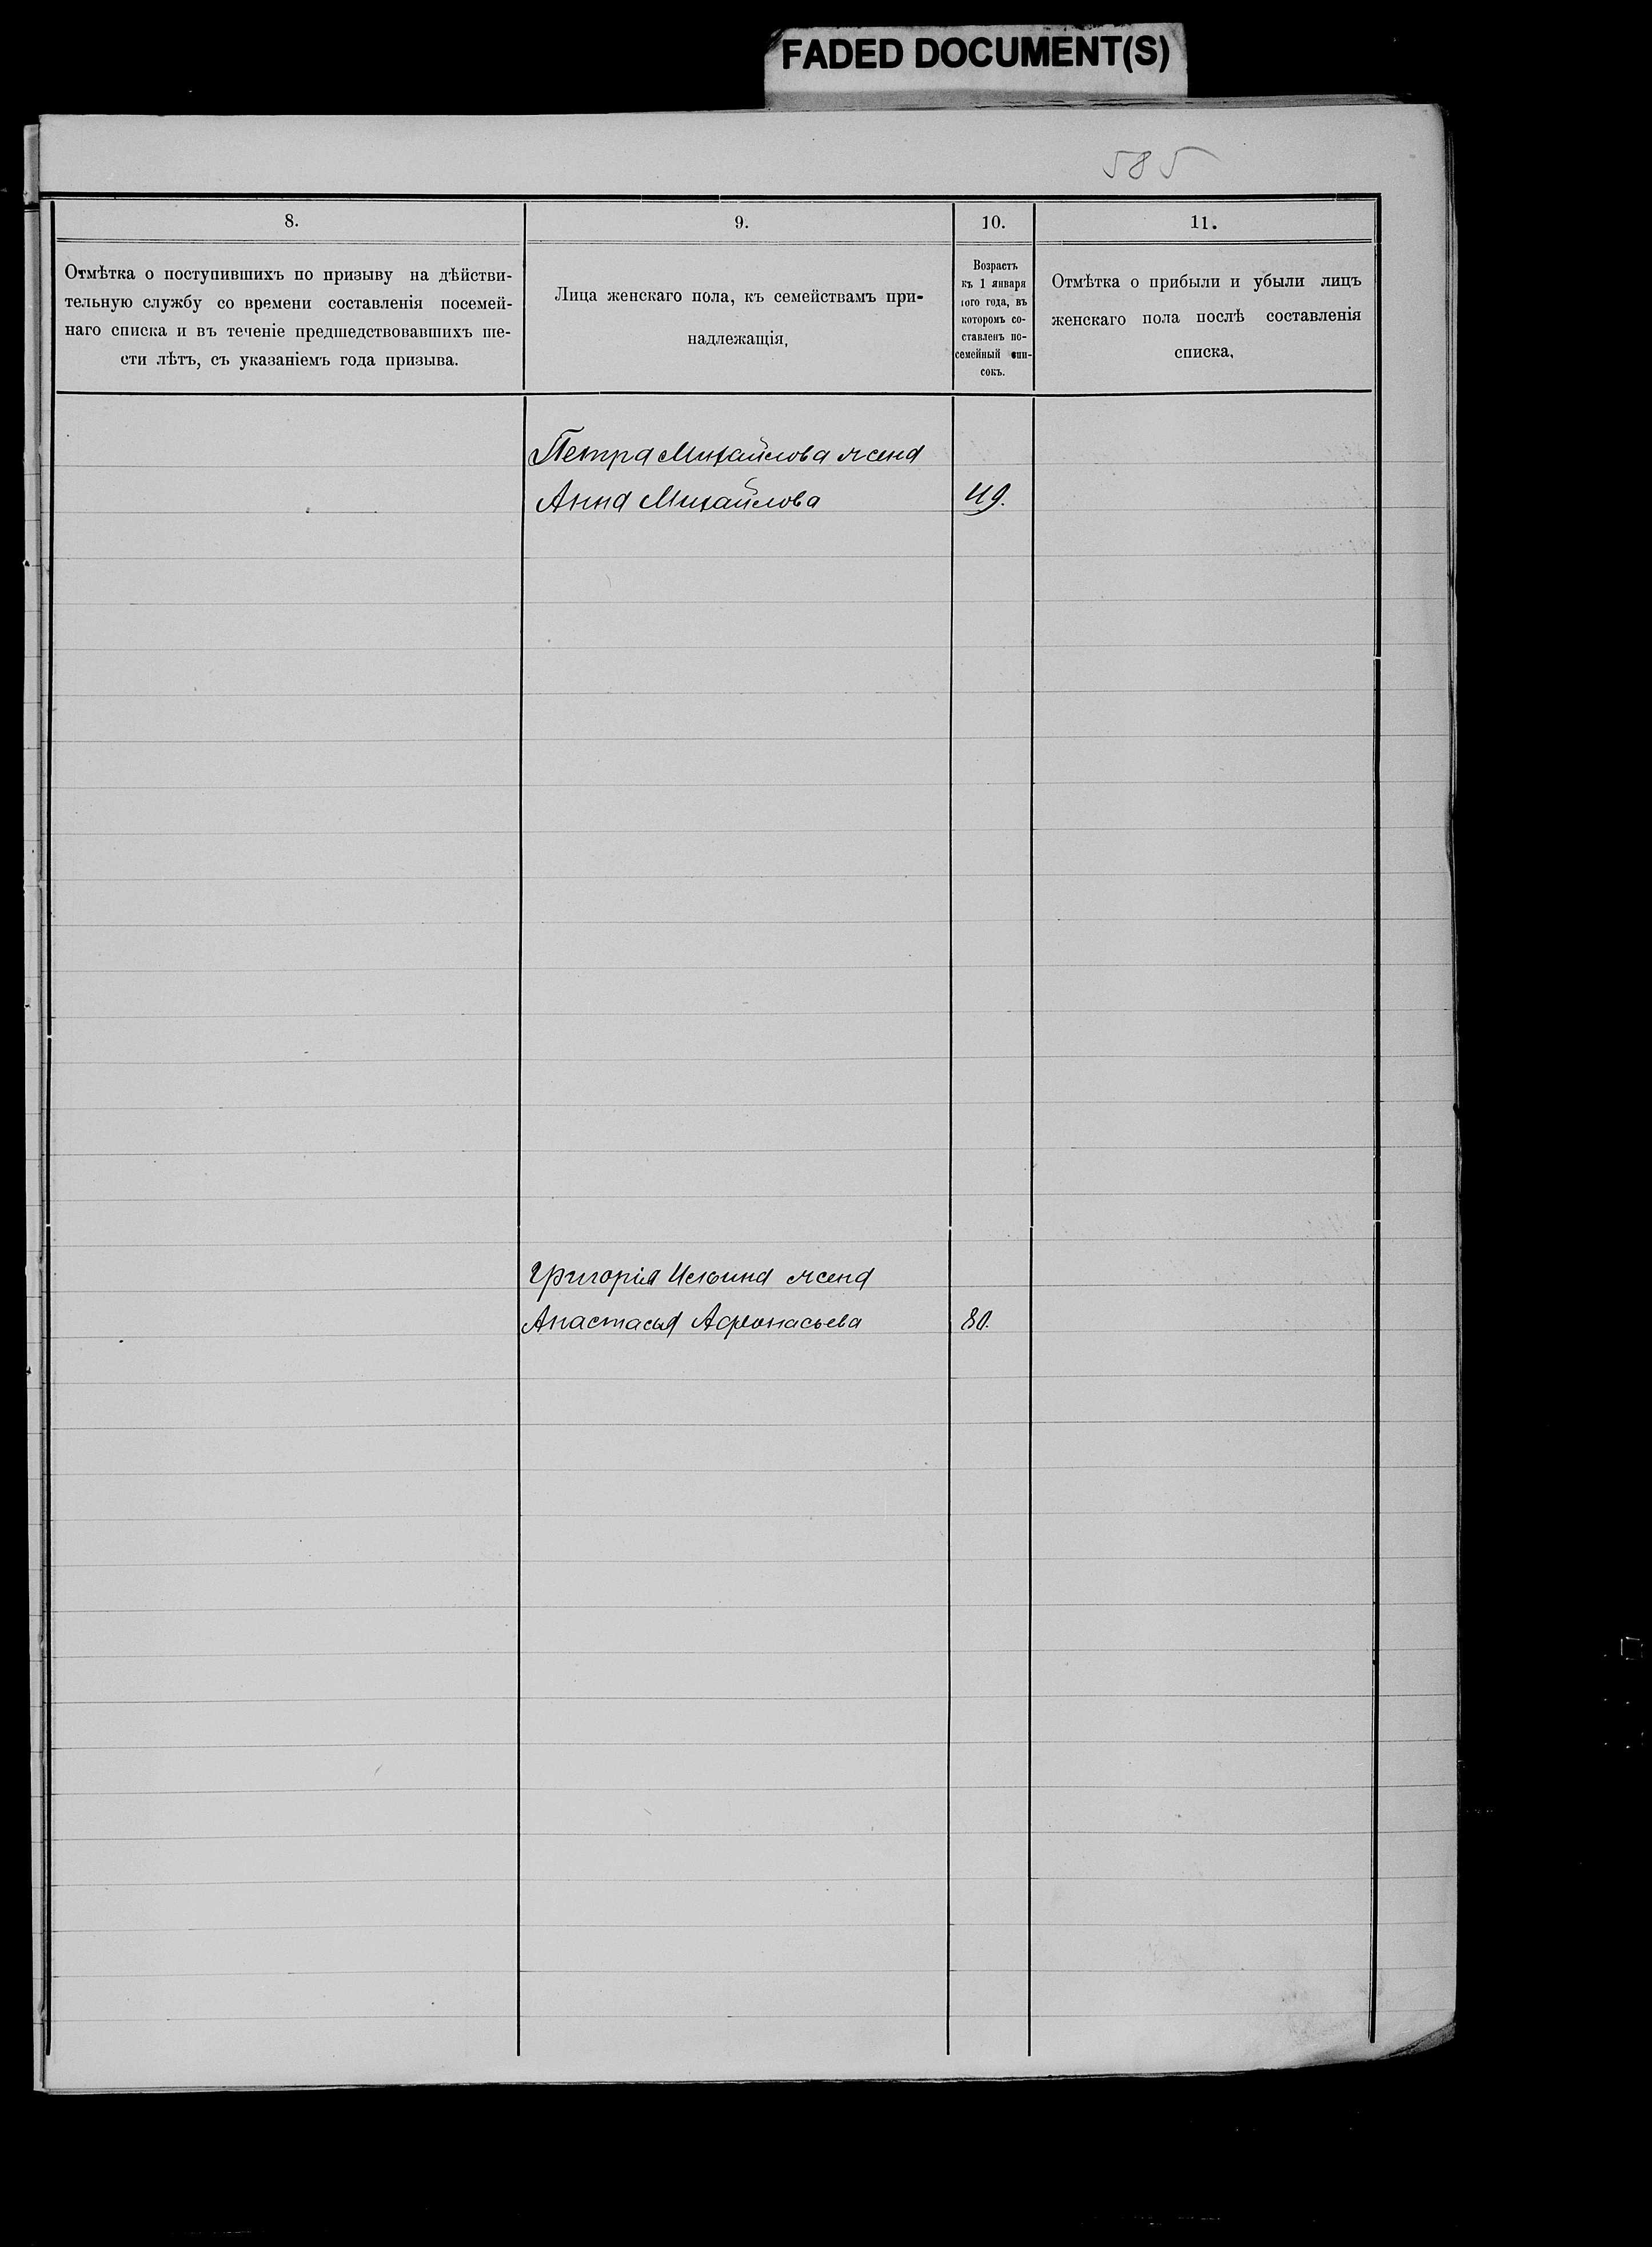 FADED DOCUMENT(S)
585
8.
9.
10.
11.
Отмѣтка о поступившихъ по призыву на дѣйстви-
тельную службу со времени составленія посемей-
наго списка и въ теченіе предшедствовавшихъ ше-
сти лѣтъ, съ указаніемъ года призыва.
Лица женскаго пола, къ семействамъ при-
надлежащія,
Возрастъ
къ 1 января
того года, въ
которомъ со-
ставленъ по-
семейный спи-
сокъ.
Отмѣтка о прибыли и убыли лицъ
женскаго пола послѣ составленія
списка,
Петра Михайлова жена
Анна Михайлова 49.
Григорія Ильина жена
Анастасья Афонасьева 80.